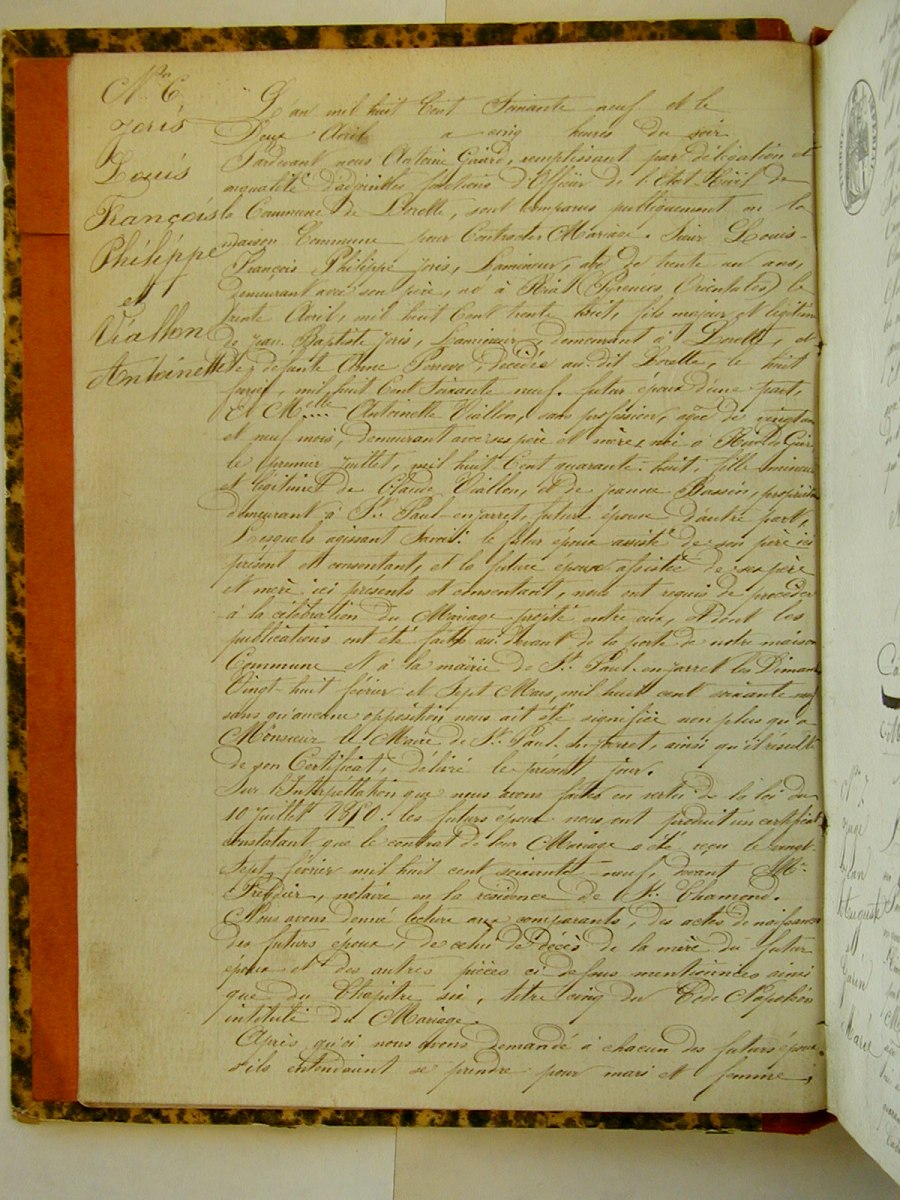 No 6
Joris
Louis
François
Philippe
et
Viallon
Antoinette
L'an mil huit Cent Soixante neuf et le
Deux Avril a cinq heures du soir
Pardevant nous Antoine Girard, remplissant par délégation et
en qualité d'adjoint les fonctions d'Officier de l'Etat Civil de
la Commune de Lorette, sont comparus publiquement en la
maison Commune pour Contracter Mariage. Sieur Louis-
François Philippe Joris, Lamineur, âgé de trente un ans,
demeurant avec son père, né à Ria (Pyrénées Orientales) le
Avril, mil huit Cent trente huit, fils majeur et légitime
de Jean Baptiste Joris, Lamineur, demeurant à Lorette, et
de défunte Anne, décédée au dit Lorette, le huit
mil huit Cent Soixante neuf. futur époux d'une part,
Et Melle Antoinette Viallon, sans profession, âgée de vingt ans
et neuf mois, demeurant avec ses père et mère, née à Rive de Gier
le premier Juillet, mil huit Cent quarante-huit, fille mineure
et légitime de Claude Viallon, et de Jeanne Bassin, propriétaires
demeurant à St. Paul-en-Jarret, future épouse d'autre part,
Lesquels agissant Savoir: le futur époux assisté de son père ici
présent et consentant, et la future épouse assistée de ses père
et mère ici présents et consentant, nous ont requis de procéder
à la célébration du Mariage projeté entre eux, et dont les
publications ont été faites au devant de la porte de notre maison
Commune et à la mairie de St. Paul-en-Jarret les Dimanches
Vingt-huit février et Sept Mars, mil huit cent soixante neuf
sans qu'aucune opposition nous ait été signifiée non plus qu'a
Monsieur le Maire de St. Paul-en-Jarret, ainsi qu'il résulte
de son Certificat, délivré le présent jour.
Sur l'Interpellation que nous avons faite en vertu de la loi du
10 Juillet 1850. les futurs époux nous ont produit un certificat
constatant que le contrat de leur Mariage a été reçu le vingt
Sept février mil huit cent soixante-neuf, devant Me
notaire en la résidence de St. Chamond.
Nous avons donné lecture aux comparants, des actes de naissance
des futurs époux, de celui de décès de la mère du futur
époux et des autres pièces ci dessus mentionnées ainsi
que du Chapitre six, titre cinq du Code Napoléon
intitulé du Mariage.
Après quoi nous avons demandé à chacun des futurs époux
s'ils entendaient se prendre pour mari et femme,